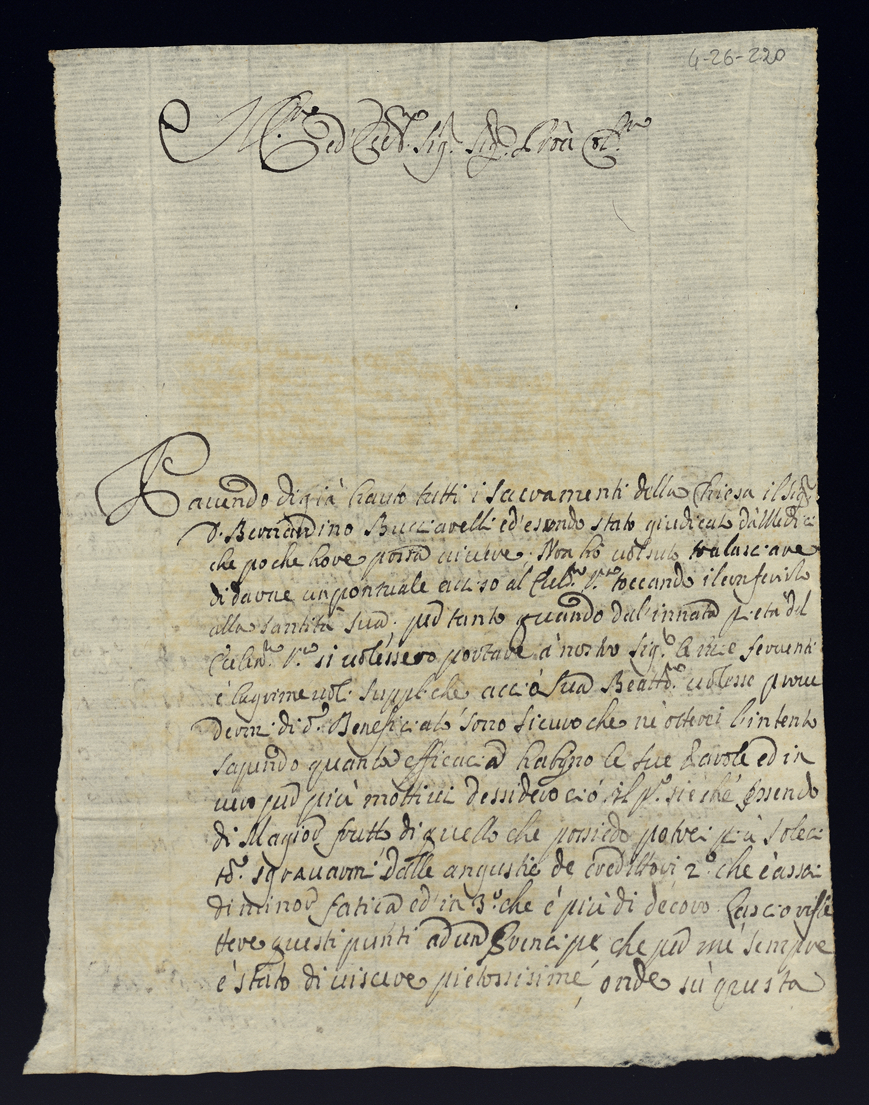 4-26-220
Ill.mo ed Ecc. Sig. Sig. Prõn
Havendo di già hauto tutti i Sacramenti della Chiesa il Sig.
D. Berrardino Bucciarelli ed' esendo stato giudicato dà Medici
che poche hore possa vivere. Non hò voluto tralasciare
di darne un pontuale aviso al toccando il conferirlo
alla Santità Sua. per tanto quando dal' innata pietà del
si volessero portare à nostro Sig.re le mie ferventi
è lagrimevoli suppliche acciò Sua Beatt.ne volesse prove
dermi di d.o Beneficiato sono sicuro che ne otterei l'intento
sapendo quanto efficacia habino le sue parole ed in
vero per più mottivi dessidero ciò il p.o si è ché essendo
di Magior frutto di quello che possiedo potrei più soleci
t.e sgravarmi dalle angustie de credittori 2.o che è assai
di minor fatica ed' in 3.o che é più di decoro. Lascio rifle
ttere questi punti ad un Prencipe che per me sempre
é stato di viscere pietosissime, onde sù questa